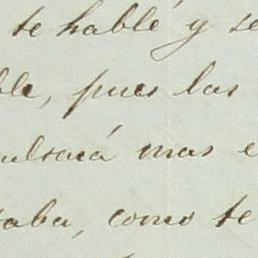 te hablé y se
ble, pues las
ultará mas e
taba, como te